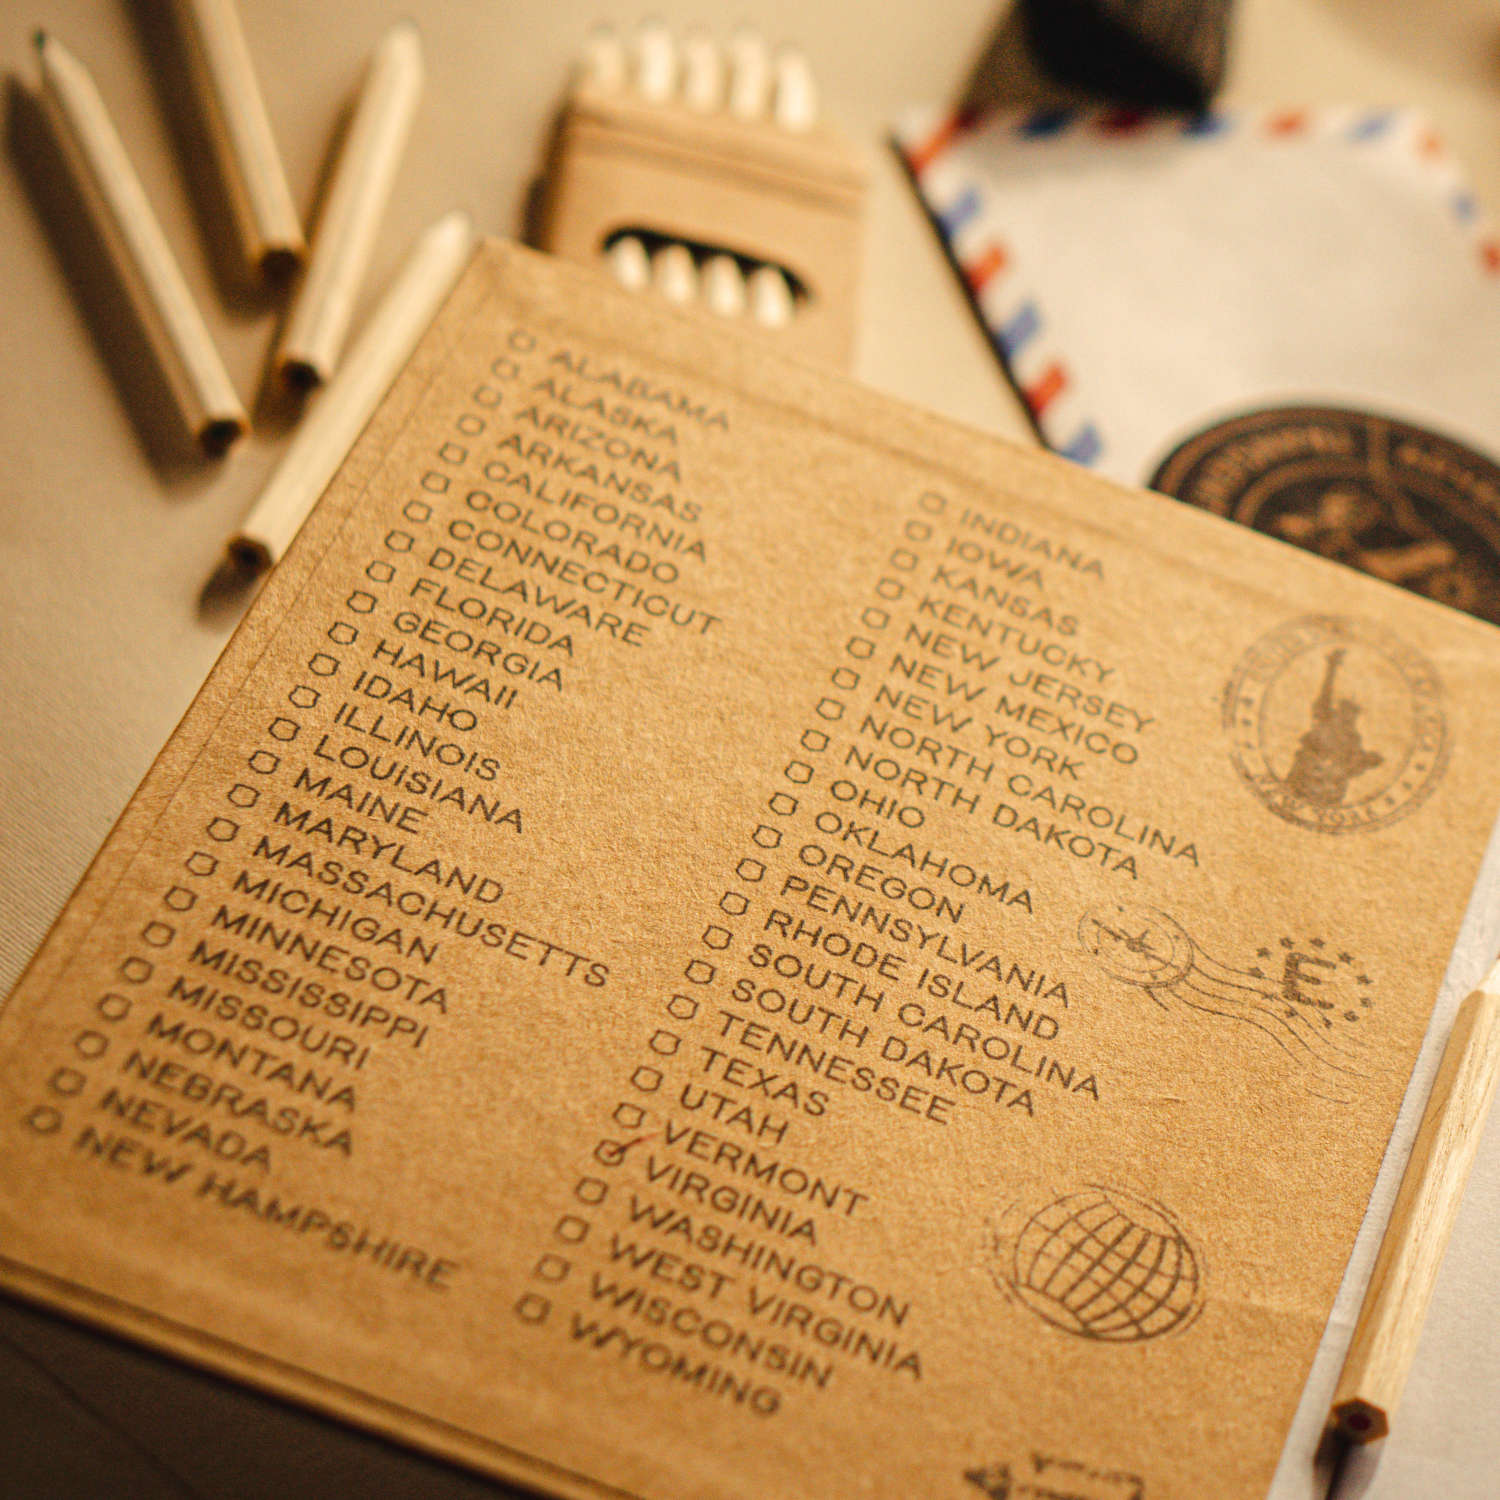 ALABAMA
ALASKA
ARIZONA
ARKANSAS
CALIFORNIA
COLORADO
CONNECTICUT
DELAWARE
FLORIDA
GEORGIA
HAWAII
IDAHO
ILLINOIS
LOUISIANA
MAINE
MARYLAND
MASSACHUSETTS
MICHIGAN
MINNESOTA
MISSISSIPPI
MISSOURI
MONTANA
NEBRASKA
NEVADA
NEW HAMPSHIRE
INDIANA
IOWA
KANSAS
KENTUCKY
NEW JERSEY
NEW MEXICO
NEW YORK
NORTH CAROLINA
NORTH DAKOTA
OHIO
OKLAHOMA
OREGON
PENNSYLVANIA
RHODE ISLAND
SOUTH CAROLINA
SOUTH DAKOTA
TENNESSEE
TEXAS
UTAH
VERMONT
VIRGINIA
WASHINGTON
WEST VIRGINIA
WISCONSIN
WYOMING
E